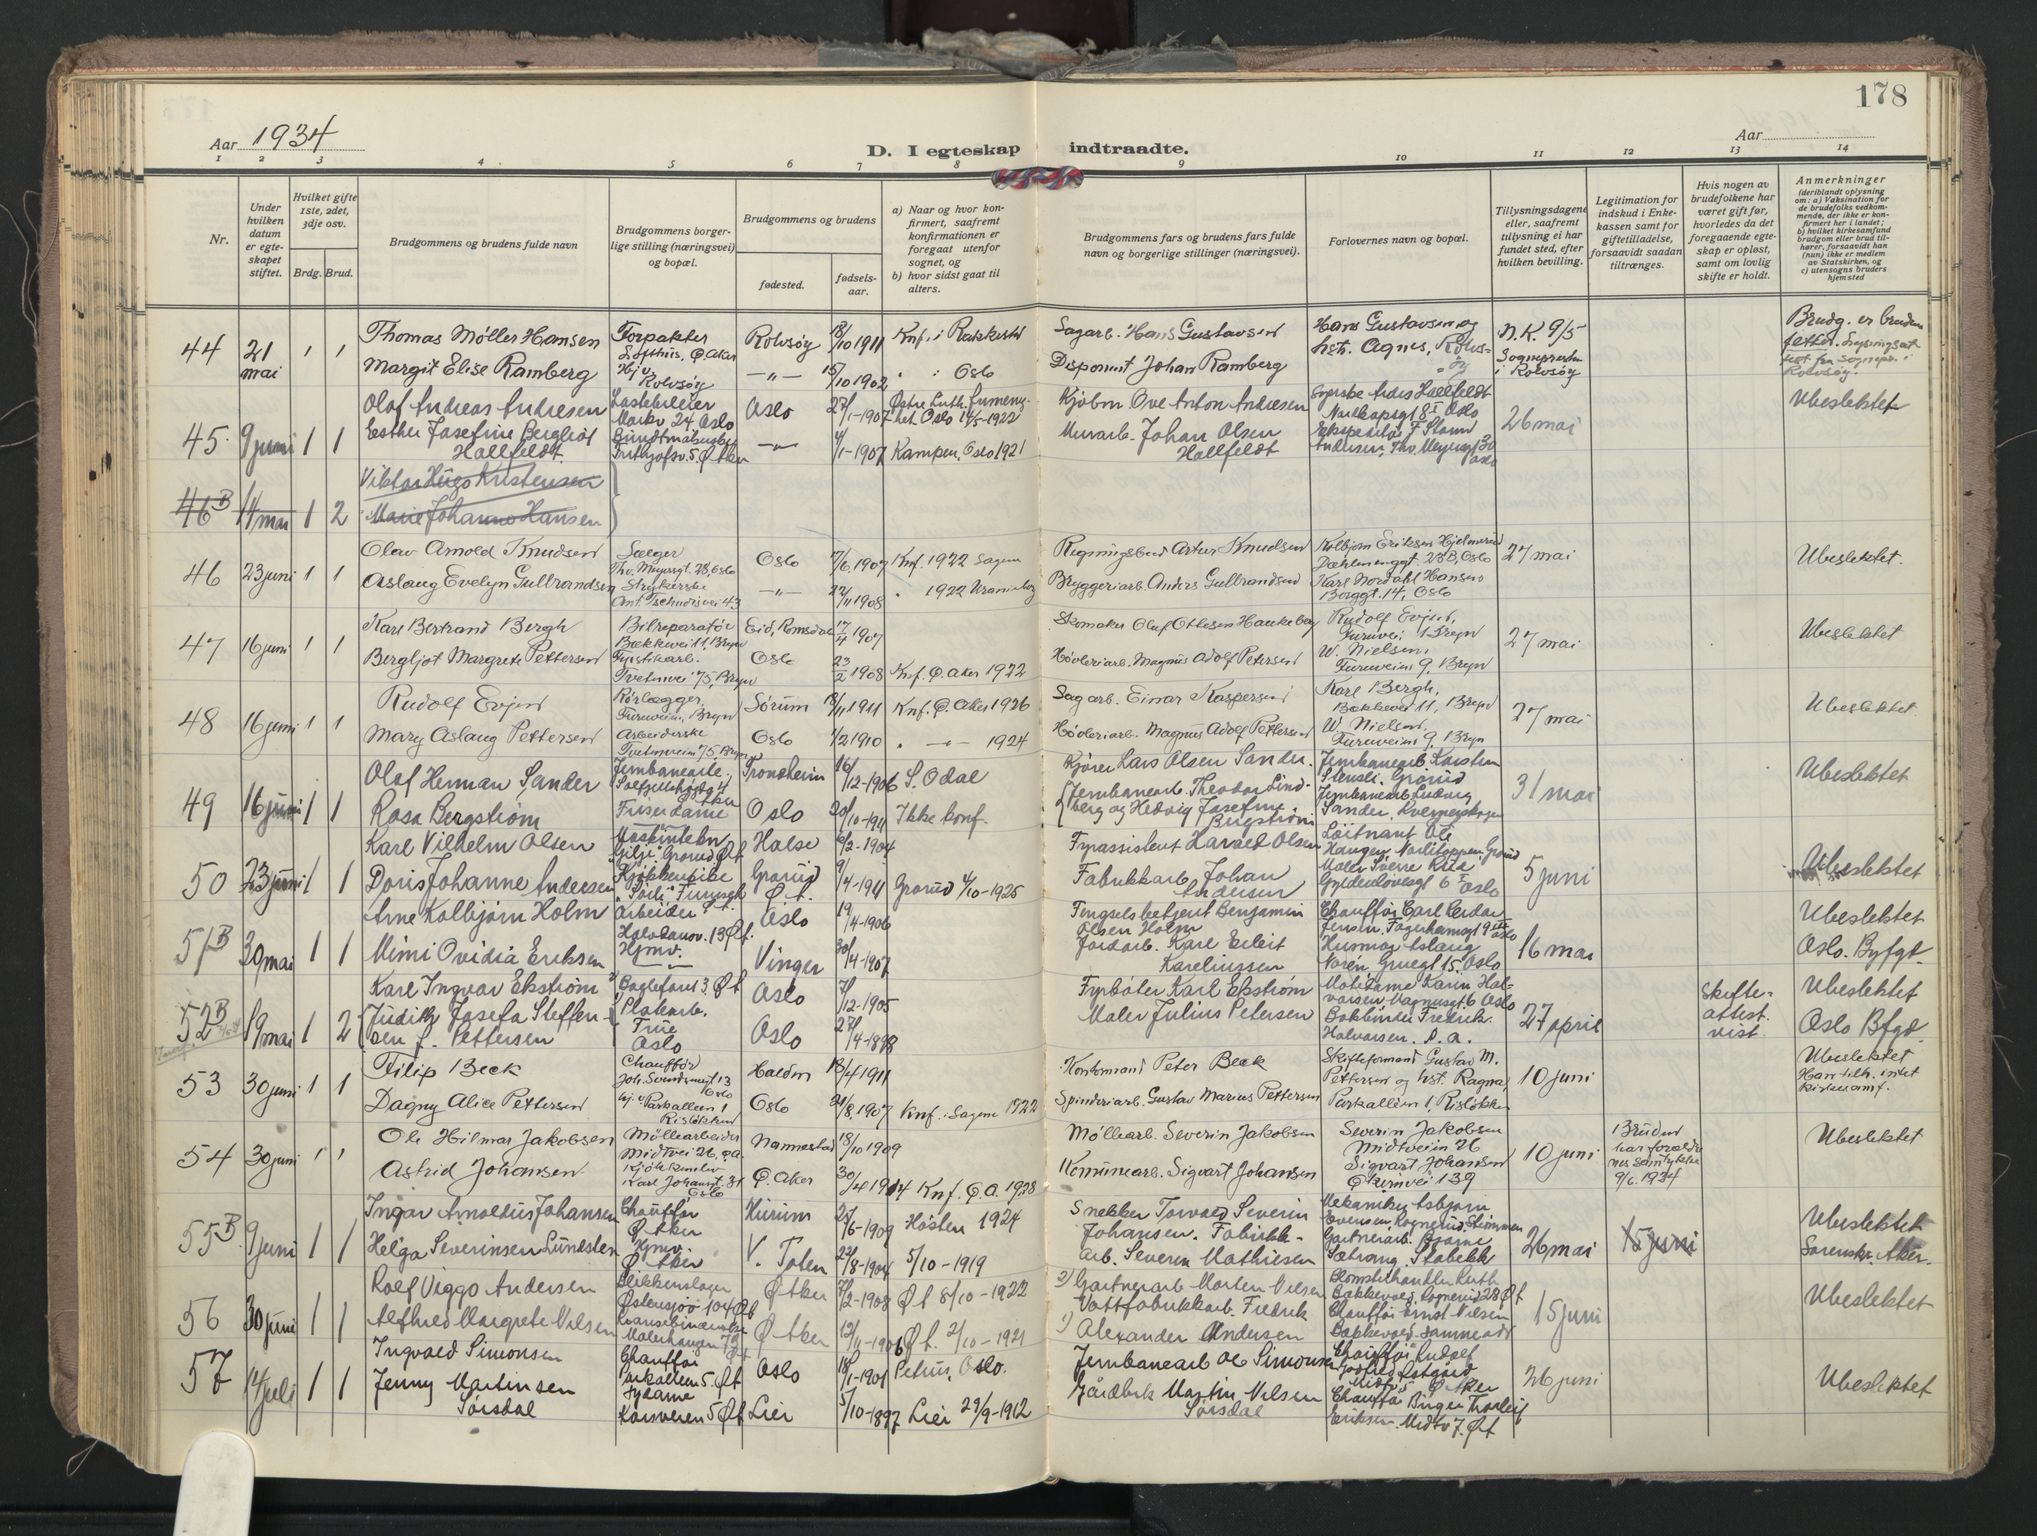 178
Aar 1934
D. I egteskap indtraadte.
Aar
1 2 3 4 5 6 7 8 9 10 11 12 13 14
Nr.
Under hvilken datum er egteskapet stiftet.
Hvilket gifte 1ste, 2det, 3dje osv.
Brdg. Brud.
Brudgommens og brudens fulde navn
Brudgommens borgerlige stilling (næringsvei) og bopæl.
Brudgommens og brudens
fødested.
fødselsaar.
a) Naar og hvor konfirmert, saafremt konfirmationen er foregaat utenfor sognet, og
b) hvor sidst gaat til alters.
Brudgommens fars og brudens fars fulde navn og borgerlige stillinger (næringsvei).
Forlovernes navn og bopæl.
Tillysningsdagene eller, saafremt tillysning ei har fundet sted, efter hvilken bevilling.
Legitimation for indskud i Enkekassen samt for giftetilladelse, forsaavidt saadan tiltrænges.
Hvis nogen av brudefolkene har været gift før, hvorledes da det foregaaende egteskap er opløst, samt om lovlig skifte er holdt.
Anmerkninger (deriblandt oplysning om: a) Vaksination for de brudefolks vedkommende, der ikke er konfirmert her i landet; b) hvilket kirkesamfund brudgom eller brud tilhører, forsaavidt han (hun) ikke er medlem av Statskirken, og c) utensogns bruders hjemsted
44 21 mai 1 1
Thomas Møller Hansen Forpakter Rolvsøy 18/10 1911 Knf. i Rakkestad
Sagarb. Hans Gustavsen Hans Gustavsen og hst. Agnes, Rolvsøy N.K. 9/5 Sognepresten i Rolvsøy
Margit Elise Ramberg Hjv. Rolvsøy 15/10 1902 " i Oslo
Disponent Johan Ramberg
45. 9 juni 1 1
Olaf Andreas Andresen Markv. 24 Oslo Oslo 27/1-1907 Østre Luth. Oslo 14/5-1922
Kjøbm Ove Anton Andresen 26 mai Ubeslektet
Esther Josefine Bergliot Hallfeldt Fritjofsv. 5. Ø Aker 4/1-1907 Kampen, Oslo 1921
Murarb. Johan Olsen Hallfeldt
46B 14 mai 1 2
Viktor Hugo Kristensen
Marie Johanne Hansen
46 23 juni 1 1
Olav Arnold Knudsen Selger Th. Meyersgt. 28, Oslo Oslo 7/6 1907 Knf. 1922 Sagene
Artur Knudsen Kolbjørn Eriksen 27 mai Ubeslektet.
Aslaug Evelyn Gulbrandsen Strykerske Ant. Tschudisvei 43 27/11 1908 " 1922 Uranienborg
Bryggeriarb. Anders Gulbrandsen Karl Nordahl Hansen Borggt. 14, Oslo
47 16 juni 1 1
Karl Bertrand Bergh Bilreparatør Bækkevei 11, Bryn Eid, Romsdal 17/4 1907
Skomaker Oluf Ottesen Haukeberg Rudolf Evjen, Furuvei 1 Bryn 27 mai Ubeslektet
Bergljot Margrete Pettersen Tvetenvei 75, Bryn Oslo 23/2 1908 Knf. Ø. Aker 1922
Høvleriarb. Magnus Adolf Petersen W. Nielsen, Furuveien 9, Bryn
48 16 juni 1 1
Rudolf Evjen Rørlegger, Furuveien, Bryn Sørum 18/11 1911 Knf. Ø. Aker 1926
Sagarb. Einar Kaspersen Karl Bergh, Bækkevei 11, Bryn 27 mai Ubeslektet.
Mary Aslaug Pettersen Arbeiderske Tvetenveien 75 Bryn Oslo 1/2 1910 " — " — 1924
Høvleriarb. Magnus Adolf Pettersen W. Nielsen, Furuveien 9, Bryn
49 16 juni 1 1
Olaf Herman Sander Jernbanearb. Trondheim 16/12-1906 S. Odal
Kjører Lars Olsen Sander. Jernbanearb Karsten Stensli. Grorud 31 mai Ubeslektet
Rosa Bergstrøm Friserdame Oslo 20/10-1911 Ikke konf.
Jernbanearb. Theodor Lindberg og Hedvig Josefine Bergstrøm Jernbanearb Ludvig Sander
50 23 juni 1 1
Karl Vilhelm Olsen "Gilje" Grorud ØA Halse 6/2-1904
Fyrassistent Harald Olsen Løitnant Ole Haugen 5 juni Ubeslektet
Doris Johanne Andersen Grorud Ø.A. 9/4-1911 Grorud 4/10-1925
Fabrikkarb. Johan Andersen Maler Sverre Gyldenløvesgt 6 I Oslo
51B 30 mai 1 1
Arne Kolbjørn Holm Arbeider Oslo 19/4-1906
Fengselsbetjent Benjamin Olsen Holm Chauffør Carl 16 mai Ubeslektet
Mimi Ovidia Eriksen Hjmv. Vinger 30/4-1907
Jordarb. Karl Eilert Kareliussen Gruegt 15. Oslo Oslo. Byfgt.
52B 19 mai 1 2
Karl Ingvar Ekstrøm Platearb. Oslo 7/12-1905
Fyrbøter Karl Ekstrøm 27 april Skifteattest vist. Ubeslektet
Judith Josefa Steffensen f. Pettersen Frue Oslo Oslo 27/4-1898
Maler Julius Petersen Bokbinder Fredrik Halvorsen. Oslo Bfgd
53 30 juni 1 1
Filip Beck Chauffør Oslo Halden 18/4 1911
Kontormand Peter Beck Skifteformand Gustav M. Pettersen og hst. Ragna 10 juni Ubeslektet Han tilh. intet kirkesamf.
Dagny Alice Pettersen Hjv. Parkalleen 1 Risløkken Oslo 21/8. 1907 Knf. i Sagene 1922
Spinderiarb. Gustav Marius Pettersen Parkalléen 1, Risløkken
54 30 juni 1 1
Ole Hilmar Jakobsen Møllearbeider Midtvei 26, Ø.A. Nannestad 18/10 1909
Møllearb. Severin Jakobsen Severin Jakobsen Midtveien 26 10 juni Bruden har forældrenes samtykke 9/6. 1934 Ubeslektet
Astrid Johansen Karl Johansgt. 31 Oslo Ø. Aker 30/4 1914 Knf. Ø.A. 1928
Kommunearb. Sigvart Johansen Sigvart Johansen 139
55B 9 juni 1 1
Ingar Arnoldus Johansen Chauffør Ø Aker Hurum 27/6-1909 Høsten 1924
Snekker Torvald Severin Johansen. Mekaniker Asbjørn Evensen 26 mai 15 juni Ubeslektet
Helga Severinsen Lundsten Hjmv. Ø Aker V. Toten 22/8-1904 5/10-1919
Fabrikkarb. Severin Mathiesen Gartnerarb. Bjarne Sætrang. Stabekk Sorenskr. Aker.
56 30 juni 1 1
Rolf Viggo Andersen Blikkenslager Østensjøv 104 ØA Ø Aker 7/2-1908 ØA 8/10-1922
2) Gartnerarb Morten Nilsen Blomsterhandler Ruth 15 juni Ubeslektet
Alfhild Margrete Nilsen Ø Aker 12/11-1906 ØA. 2/10-1921
Vattfabrikkarb. Fredrik 1) Alexander Andersen Chauffør Ernst Nilsen
57 14 juli 1 1
Ingvald Simonsen Chauffør Parkalleen 5. ØA Oslo 18/1-1901 Petrus, Oslo.
Jernbanearb Ole Simonsen Chauffør Rudolf 26 juni Ubeslektet
Jenny Martinsen Sørsdal Sydame Korsveien 5 ØA Lier 5/10-1897 Lier 29/9-1912
Gårdbruk Martin Nilsen Sørsdal Chauffør Birger Thorleif Eriksen. Midtv 7. ØA